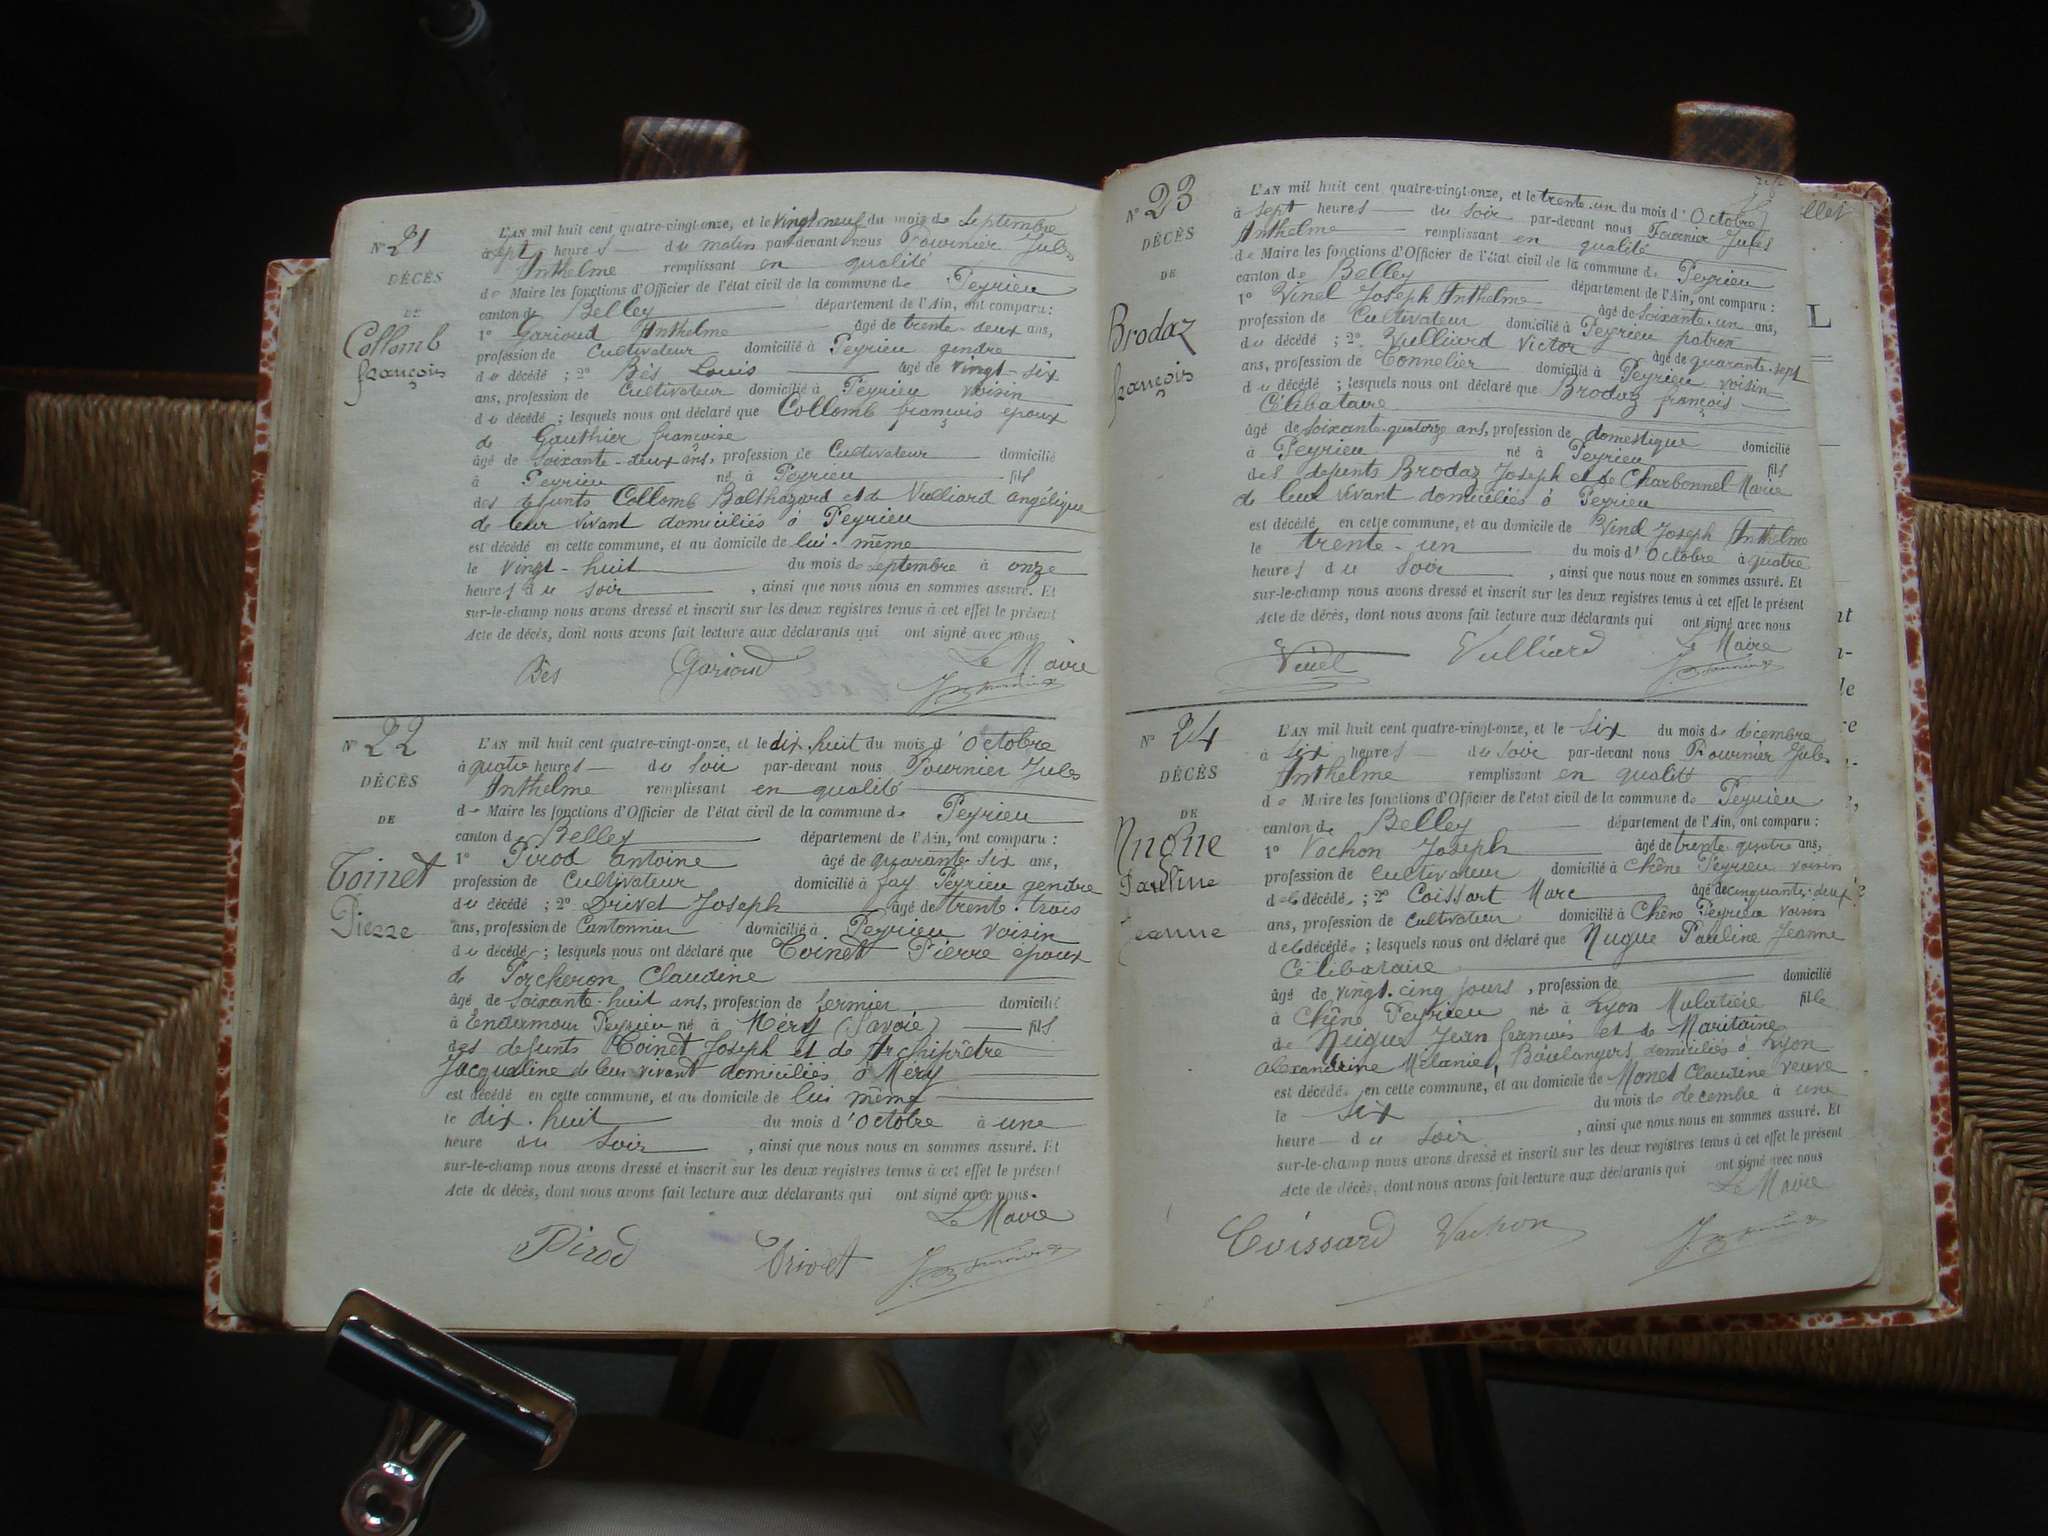 N° 21
DÉCÈS
DE
Collomb
françois
L'AN mil huit cent quatre-vingt-onze, et le vingt neuf du mois de Septembre
à sept heures du matin par-devant nous Fournier Jules
Anthelme remplissant en qualité
de Maire les fonctions d'Officier de l'état civil de la commune de Peyrieu
canton de Belley département de l'Ain, ont comparu :
1° Garioud Anthelme âgé de trente-deux ans,
profession de Cultivateur domicilié à Peyrieu gendre
du décédé ; 2° Bès Louis âgé de vingt-six
ans, profession de Cultivateur domicilié à Peyrieu voisin
du décédé ; lesquels nous ont déclaré que Collomb françois époux
de Gauthier françoise
âgé de Soixante-deux ans, profession de Cultivateur domicilié
à Peyrieu né à Peyrieu fils
des défunts Collomb Balthazard et de Vulliard angélique
de leur vivant domiciliés à Peyrieu
est décédé en cette commune, et au domicile de lui-même
le vingt-huit du mois de Septembre à onze
heures du soir, ainsi que nous nous en sommes assuré. Et
sur-le-champ nous avons dressé et inscrit sur les deux registres tenus à cet effet le présent
Acte de décès, dont nous avons fait lecture aux déclarants qui ont signé avec nous
Le Maire
Bès Gariod
N° 22
DÉCÈS
DE
Toinet
Pierre
L'AN mil huit cent quatre-vingt-onze, et le dix-huit du mois d'Octobre
à quatre heures du soir par-devant nous Fournier Jules
Anthelme remplissant en qualité
de Maire les fonctions d'Officier de l'état civil de la commune de Peyrieu
canton de Belley département de l'Ain, ont comparu :
1° Pirod antoine âgé de quarante-six ans,
profession de Cultivateur domicilié à fay Peyrieu gendre
du décédé ; 2° Drivet Joseph âgé de trente-trois
ans, profession de Cantonnier domicilié à Peyrieu voisin
du décédé ; lesquels nous ont déclaré que Toinet Pierre époux
de Porcheron Claudine
âgé de Soixante-huit ans, profession de fermier domicilié
à Peyrieu né à Méry (Savoie) fils
des défunts Toinet Joseph et de Archiprêtre
Jacqueline de leur vivant domiciliés à Méry
est décédé en cette commune, et au domicile de lui même
le dix-huit du mois d'Octobre à une
heure du soir, ainsi que nous nous en sommes assuré. Et
sur-le-champ nous avons dressé et inscrit sur les deux registres tenus à cet effet le présent
Acte de décès, dont nous avons fait lecture aux déclarants qui ont signé avec nous.
Le Maire
Pirod Drivet
N° 23
DÉCÈS
DE
Brodaz
françois
L'AN mil huit cent quatre-vingt-onze, et le trente-un du mois d'Octobre
à sept heures du soir par-devant nous Fournier Jules
Anthelme remplissant en qualité
de Maire les fonctions d'Officier de l'état civil de la commune de Peyrieu
canton de Belley département de l'Ain, ont comparu :
1° Vinel Joseph Anthelme âgé de soixante-un ans,
profession de Cultivateur domicilié à Peyrieu patron
du décédé ; 2° Vulliard Victor âgé de quarante-sept
ans, profession de Tonnelier domicilié à Peyrieu voisin
du décédé ; lesquels nous ont déclaré que Brodaz françois
Célibataire
âgé de soixante-quatorze ans, profession de domestique domicilié
à Peyrieu né à Peyrieu fils
des défunts Brodaz Joseph et de Charbonnel Marie
de leur vivant domiciliés à Peyrieu
est décédé en cette commune, et au domicile de Vinel Joseph Anthelme
le trente-un du mois d'Octobre à quatre
heures du soir, ainsi que nous nous en sommes assuré. Et
sur-le-champ nous avons dressé et inscrit sur les deux registres tenus à cet effet le présent
Acte de décès, dont nous avons fait lecture aux déclarants qui ont signé avec nous
Le Maire
Vinel Vulliard
N° 24
DÉCÈS
DE
Nugue
Pauline
Jeanne
L'AN mil huit cent quatre-vingt-onze, et le six du mois de décembre
à six heures du soir par-devant nous Fournier Jules
Anthelme remplissant en qualité
de Maire les fonctions d'Officier de l'état civil de la commune de Peyrieu
canton de Belley département de l'Ain, ont comparu :
1° Vachon Joseph âgé de trente-quatre ans,
profession de cultivateur domicilié à Chêne Peyrieu voisin
de la décédée ; 2° Coissart Marc âgé de cinquante-deux
ans, profession de Cultivateur domicilié à Chêne Peyrieu voisin
de la décédée ; lesquels nous ont déclaré que Nugue Pauline Jeanne
Célibataire
âgé de vingt-cinq jours, profession de domicilié
à Chêne Peyrieu né à Lyon Mulatière fille
de Nugue Jean françois et de Maritaine
alexandrine Mélanie, Boulangers domiciliés à Lyon
est décédée en cette commune, et au domicile de Monet Claudine veuve
le Six du mois de decembre à une
heure du soir, ainsi que nous nous en sommes assuré. Et
sur-le-champ nous avons dressé et inscrit sur les deux registres tenus à cet effet le présent
Acte de décès, dont nous avons fait lecture aux déclarants qui ont signé avec nous
Le Maire
Coissard Vachon